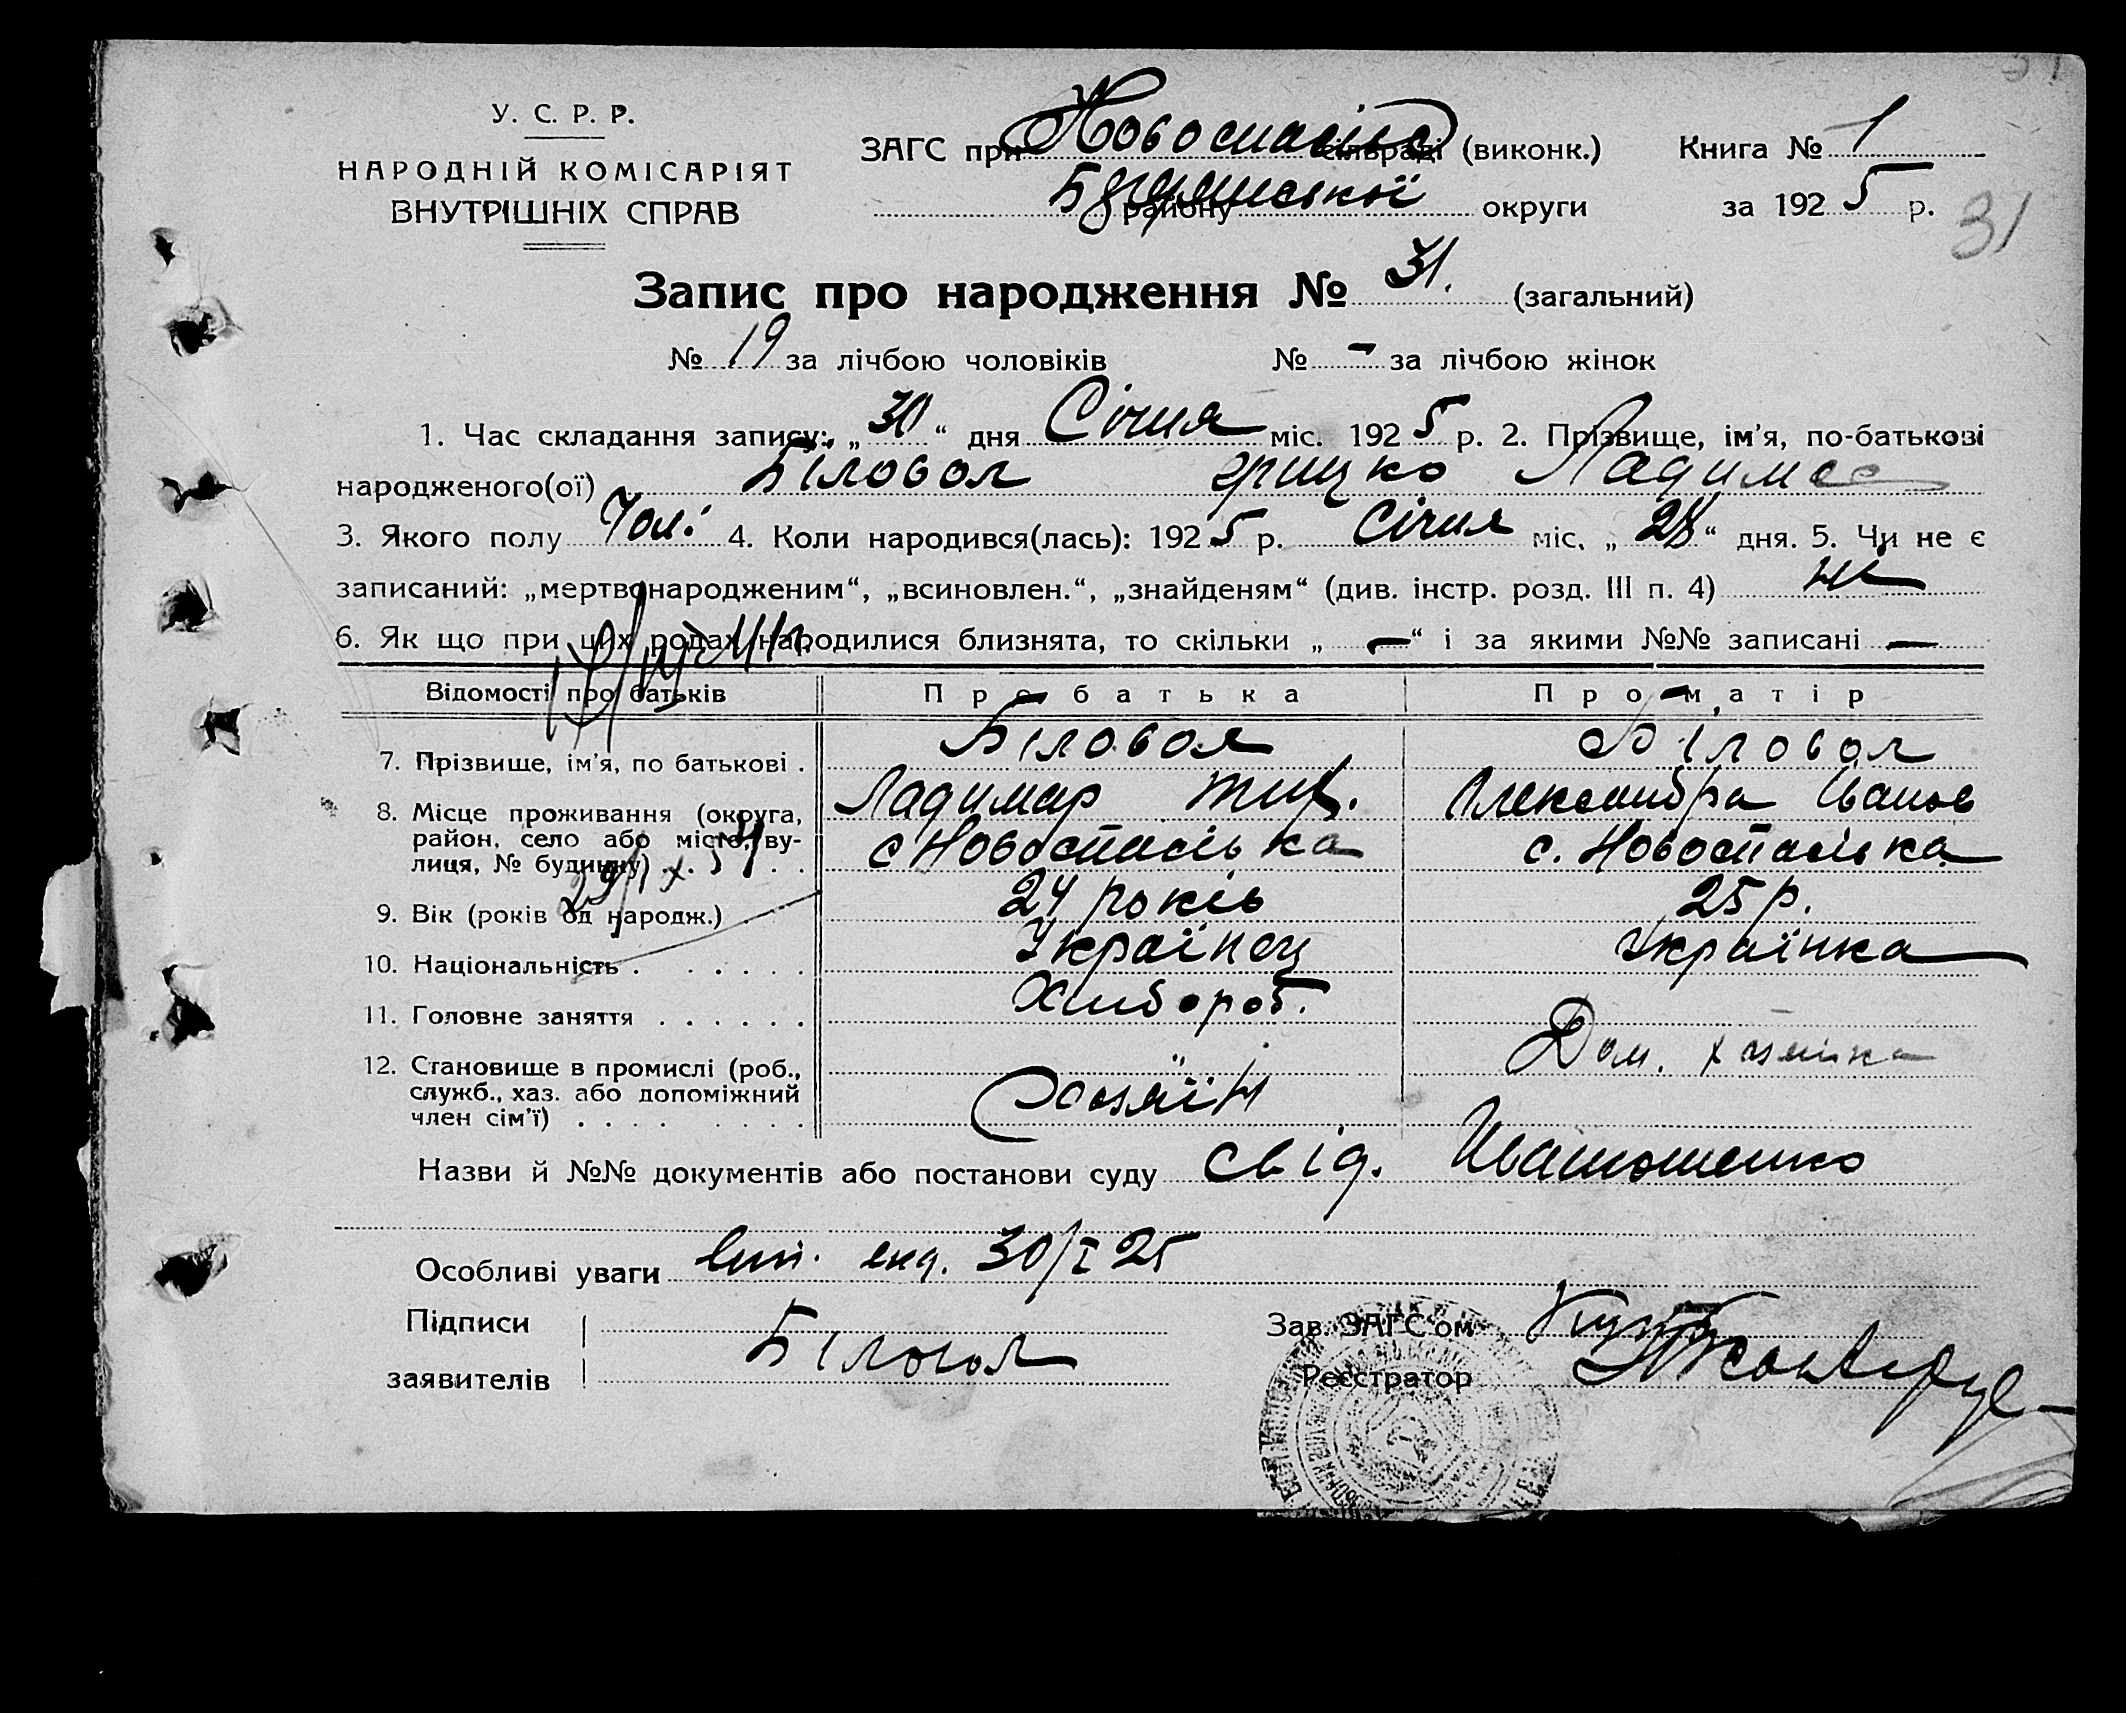 31
У. С. Р. Р.
НАРОДНІЙ КОМІСАРІЯТ
ВНУТРІШНІХ СПРАВ
ЗАГС при сільраді (виконк.)
району округи
Книга № 1
за 1925 р.
31
Запис про народження № 31. (загальний)
№ 19 за лічбою чоловіків № – за лічбою жінок
1. Час складання запису: „30“ дня Січня міс. 1925 р. 2. Прізвище, ім'я, по-батькові
народженого(ої) Біловол Грицко Ладимес
3. Якого полу Чол. 4. Коли народився(лась): 1925 р. Січня міс. „28“ дня. 5. Чи не є
записаний: „мертвонародженим“, „всиновлен.“, „знайденям“ (див. інстр. розд. III п. 4) ні
6. Як що при цих родах народилися близнята, то скільки „–“ і за якими №№ записані –
Відомості про батьків Про батька Про матір
7. Прізвище, ім'я, по батькові . Біловол Біловол
Ладимир Тиф. Александра Іванов
8. Місце проживання (округа,
район, село або місто, ву-
лиця, № будинку) . . . . с Новоспасівка с. Новоспасівка
29/IX 54
9. Вік (років од народж.) . 24 років 25 р.
10. Національність . . . . . . Українец Українка
11. Головне заняття . . . . . . Хлібороб.
12. Становище в промислі (роб.,
служб., хаз. або допоміжний
член сім'ї) . . . . . . . . Хозяїн Дом. хазяйка
Назви й №№ документів або постанови суду свід. Иванюшенко
Особливі уваги 30/I 25
Підписи
заявителів Біловол
Зав. ЗАГС'ом
Реєстратор